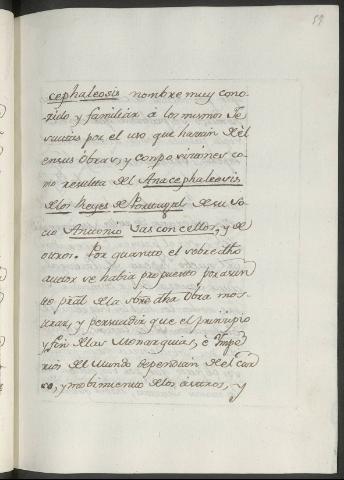 59
cephaleosis nombre muy cono-
zido y familiar à los mismos Je
suitas por el uso que hazian de èl
en sus Obras, y composiziones co-
mo resulta del Anacephaleosis
de los Reyes de Portugal de su So-
cio Antonio Vasconcellos, y de
otros. Por quanto el sobredho
autor se habia propuesto por asun
to pral de la sbre dha Obra mos-
trar, y persuadir que el prinzipio
y fin de las Monarquias, è Impe
rios del Mundo dependian de el cur
so, y mobimiento de los astros, y